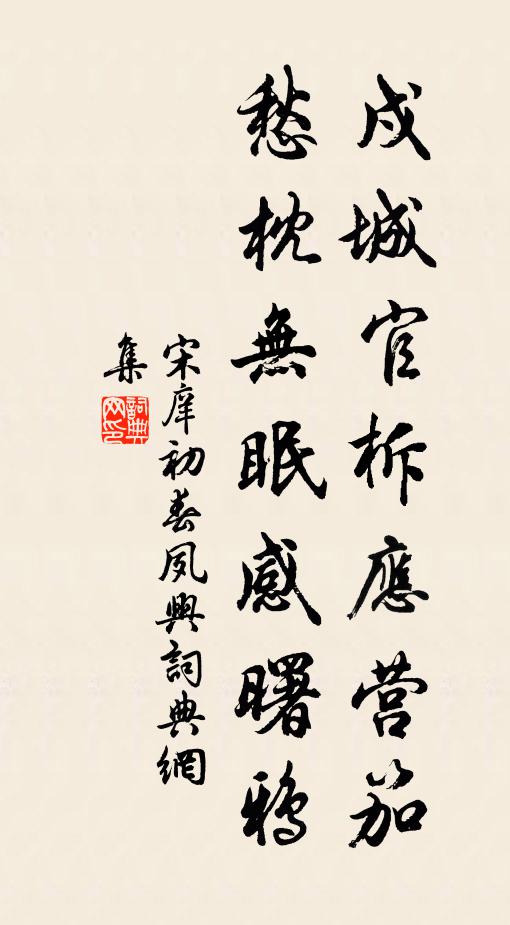 戍城官柝應营笳
愁枕無眠感曙鴉
宋庠初春夙興詞典網
集
詞典
网印